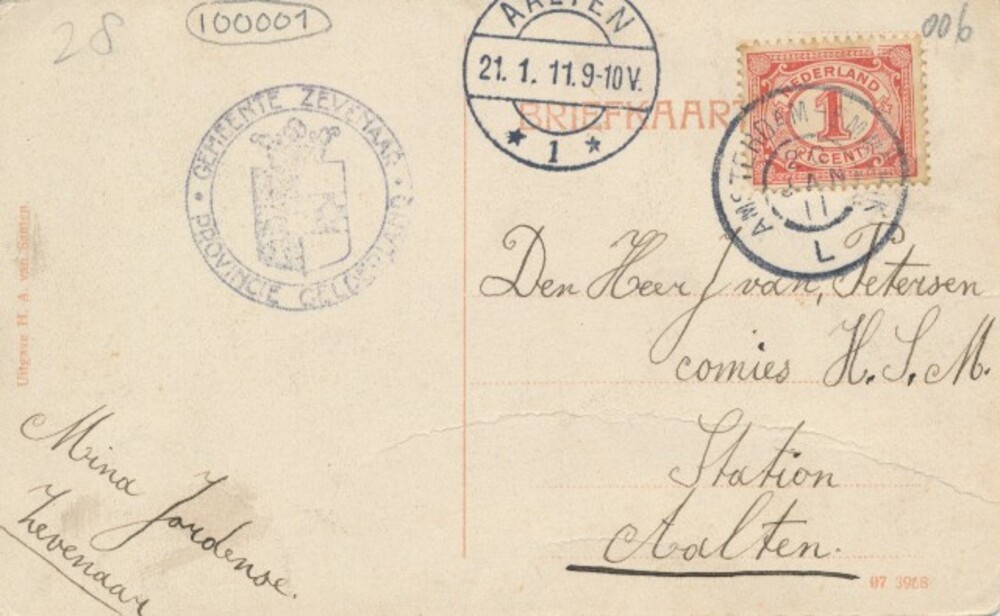 28
100001
006
AALTEN
21. 1. 11. 9-10 V.
* 1 *
BRIEFKAART
NEDERLAND
1
CENT
AMSTERDAM
JAN
11
L
GEMEENTE ZEVENAAR
PROVINCIE GELDERLAND
Uitgave H. A. van Santen
Den Heer J van, Petersen
comies H.S.M.
Station
Aalten.
Mina Jordense.
Zevenaar
07 3968